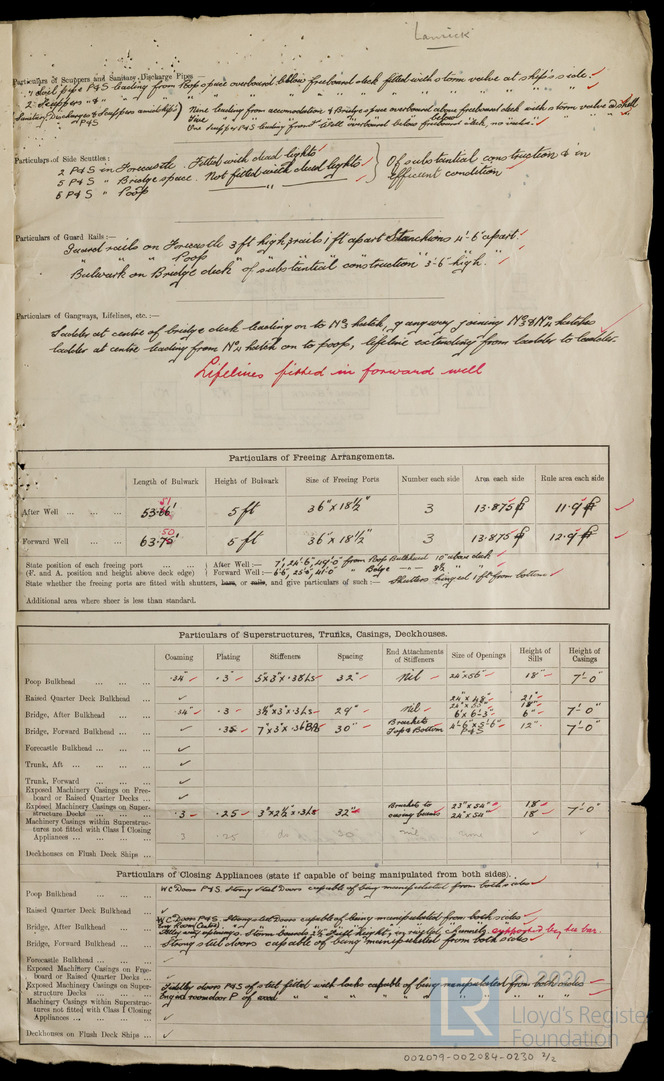 Lanrick
Particulars of Scuppers and Sanitary Discharge Pipes—
4 Soil pipe P&S leading from Poop space overboard below freeboard deck fitted with storm valve at ship's side.
2 Scuppers " & " " " " " " " " " "
Sanitary Discharges & Scuppers amidships } Nine leading from accomodation & Bridge space overboard above freeboard deck with storm valve at shell
P&S Five " " " " " below " "
One scupper P&S leading from Well overboard below freeboard deck, no valve.
Particulars of Side Scuttles:—
2 P&S in Forecastle. Fitted with dead lights
5 P&S " Bridge space. Not fitted with dead lights
6 P&S " Poop " "
} Of substantial construction & in
efficient condition
Particulars of Guard Rails:—
Guard rails on Forecastle 3 ft high 3 rails 1 ft apart Stanchions 4'-6" apart.
" " " Poop " " " " "
Bulwark on Bridge deck of substantial construction 3'-6" high.
Particulars of Gangways, Lifelines, etc.:—
Ladder at centre of bridge deck leading on to No3 hatch, gangway joining No3 & No4 hatches
ladder at centre leading from No4 hatch on to poop, lifeline extending from ladder to ladder.
Lifelines fitted in forward well
Particulars of Freeing Arrangements.
Length of Bulwark Height of Bulwark Size of Freeing Ports Number each side Area each side Rule area each side
51
After Well ... ... 53.66' 5 ft 36" x 18½" 3 13.875 11.9
50
Forward Well ... 63.75' 5 ft 36" x 18½" 3 13.875 12.9
State position of each freeing port ... ... } After Well:— 7', 24'-6", 49'-0" from Poop Bulkhead 10" above deck
(F. and A. position and height above deck edge) } Forward Well:— 6'-6", 25'-6", 41'-0" " Bdge —"— 8½ " "
State whether the freeing ports are fitted with shutters, bars, or rails, and give particulars of such:— Shutters hinged 1 ft from bottom
Additional area where sheer is less than standard.
Particulars of Superstructures, Trunks, Casings, Deckhouses.
Coaming Plating Stiffeners Spacing End Attachments of Stiffeners Size of Openings Height of Sills Height of Casings
Poop Bulkhead ... ... ... .34" .3 5" x 3" x .38 Ls 32" Nil 24" x 56" 18" 7'-0"
Raised Quarter Deck Bulkhead ... 24" x 48" 21"
Bridge, After Bulkhead ... ... .34" .3 3½" x 3" x .3 Ls 29" Nil 24" x 53" 18" 7'-0"
6' x 6'-3" 6"
Bridge, Forward Bulkhead ... ... .35 7" x 3" x .36 30" Brackets Top & Bottom 4'-6" x 5'-6" P&S 12" 7'-0"
Forecastle Bulkhead ... ... ...
Trunk, Aft ... ... ...
Trunk, Forward ... ... ...
Exposed Machinery Casings on Free-
board or Raised Quarter Decks ...
Exposed Machinery Casings on Super-
structure Decks ... ... ... .3 .25 3" x 2½" x .3 Ls 32" Brackets to casing beams 23" x 54" 18 7'-0"
24" x 54" 18
Machinery Casings within Superstruc-
tures not fitted with Class I Closing
Appliances ... ... ... 3 .25 do 30 nil none
Deckhouses on Flush Deck Ships ...
Particulars of Closing Appliances (state if capable of being manipulated from both sides).
Poop Bulkhead ... ... ... W C Doors P&S. Strong Steel Doors capable of being manipulated from both sides
Raised Quarter Deck Bulkhead ...
W C Doors P&S. Strong steel Doors capable of being manipulated from both sides
Bridge, After Bulkhead ... ... Alley way openings. Storm boards 2½" Full height, in riveted channels supported by tee bar.
Bridge, Forward Bulkhead ... Strong steel doors capable of being manipulated from both sides
Forecastle Bulkhead ... ... ...
Exposed Machinery Casings on Free-
board or Raised Quarter Decks ...
Exposed Machinery Casings on Super-
structure Decks ... ... ... Fiddley doors P&S of steel fitted with locks capable of being manipulated from both sides
Engine room door P. of wood " " " " " " " "
Machinery Casings within Superstruc-
tures not fitted with Class I Closing
Appliances ... ... ...
Deckhouses on Flush Deck Ships ...
© 2020
LR
Lloyd's Register
Foundation
002079-002084-0230 2/2